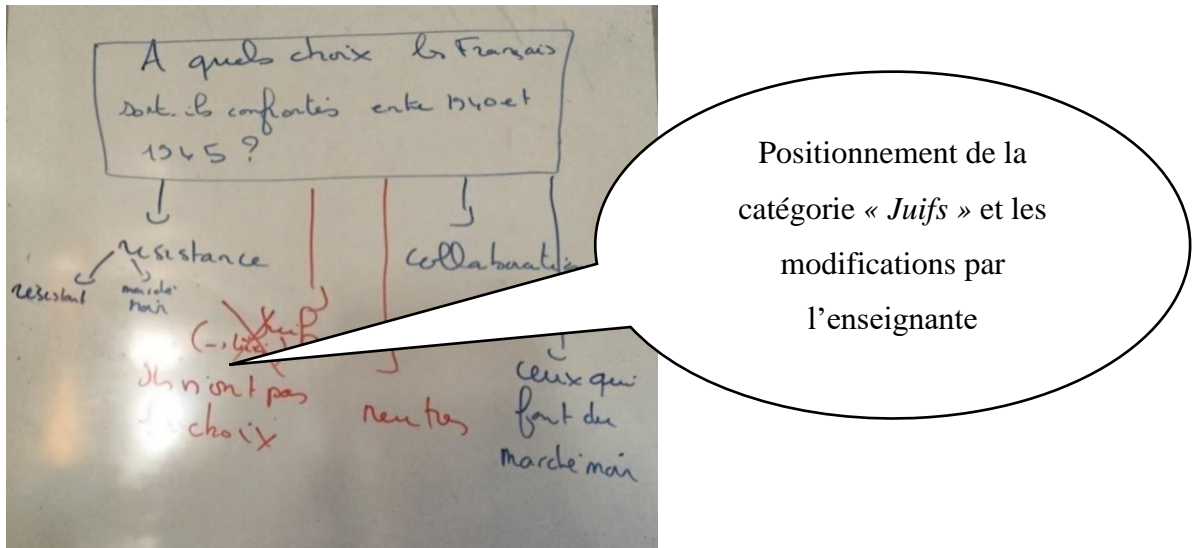 A quels choix les Français
sont-ils confrontés entre 1940 et
1945 ?
resistance
collaboration
resistant
marché
noir
Juifs
Ils n'ont pas
choix
neutres
ceux qui
font du
marché noir
Positionnement de la
catégorie « Juifs » et les
modifications par
l'enseignante